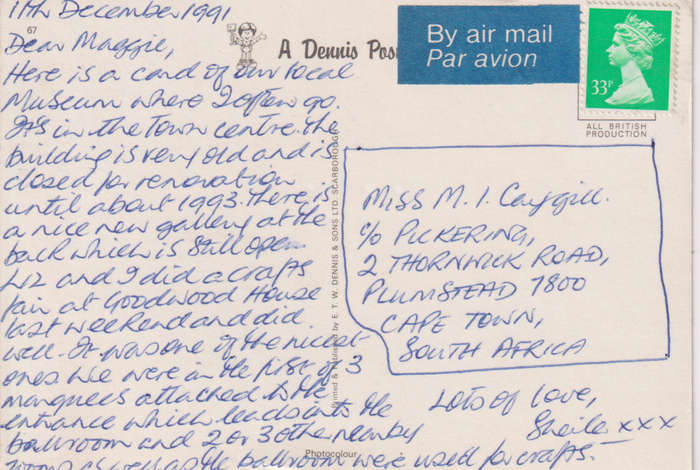 11th December 1991
67
Dear Maggie,
Here is a card of our local
Museum where I often go.
It's in the Town centre. The
building is very old and is
closed for renovation
until about 1993. There is
a nice new gallery at the
back which is still open.
Liz and I did a crafts
fair at Goodwood House
last weekend and did
well. It was one of the nicest
ones. We were in the first of 3
marquees attached to the
entrance which leads into the
ballroom and 2 or 3 other nearby
rooms as well as the ballroom were used for crafts.
A Dennis Pos
By air mail
Par avion
33P
ALL BRITISH
PRODUCTION
Printed & Published by E. T. W. DENNIS & SONS LTD. SCARBOROUGH
Photocolour
Miss M. I. Caygill.
c/o PICKERING,
2 THORNWICK ROAD,
PLUMSTEAD 7800
CAPE TOWN,
SOUTH AFRICA
Lots of love,
Sheila xxx